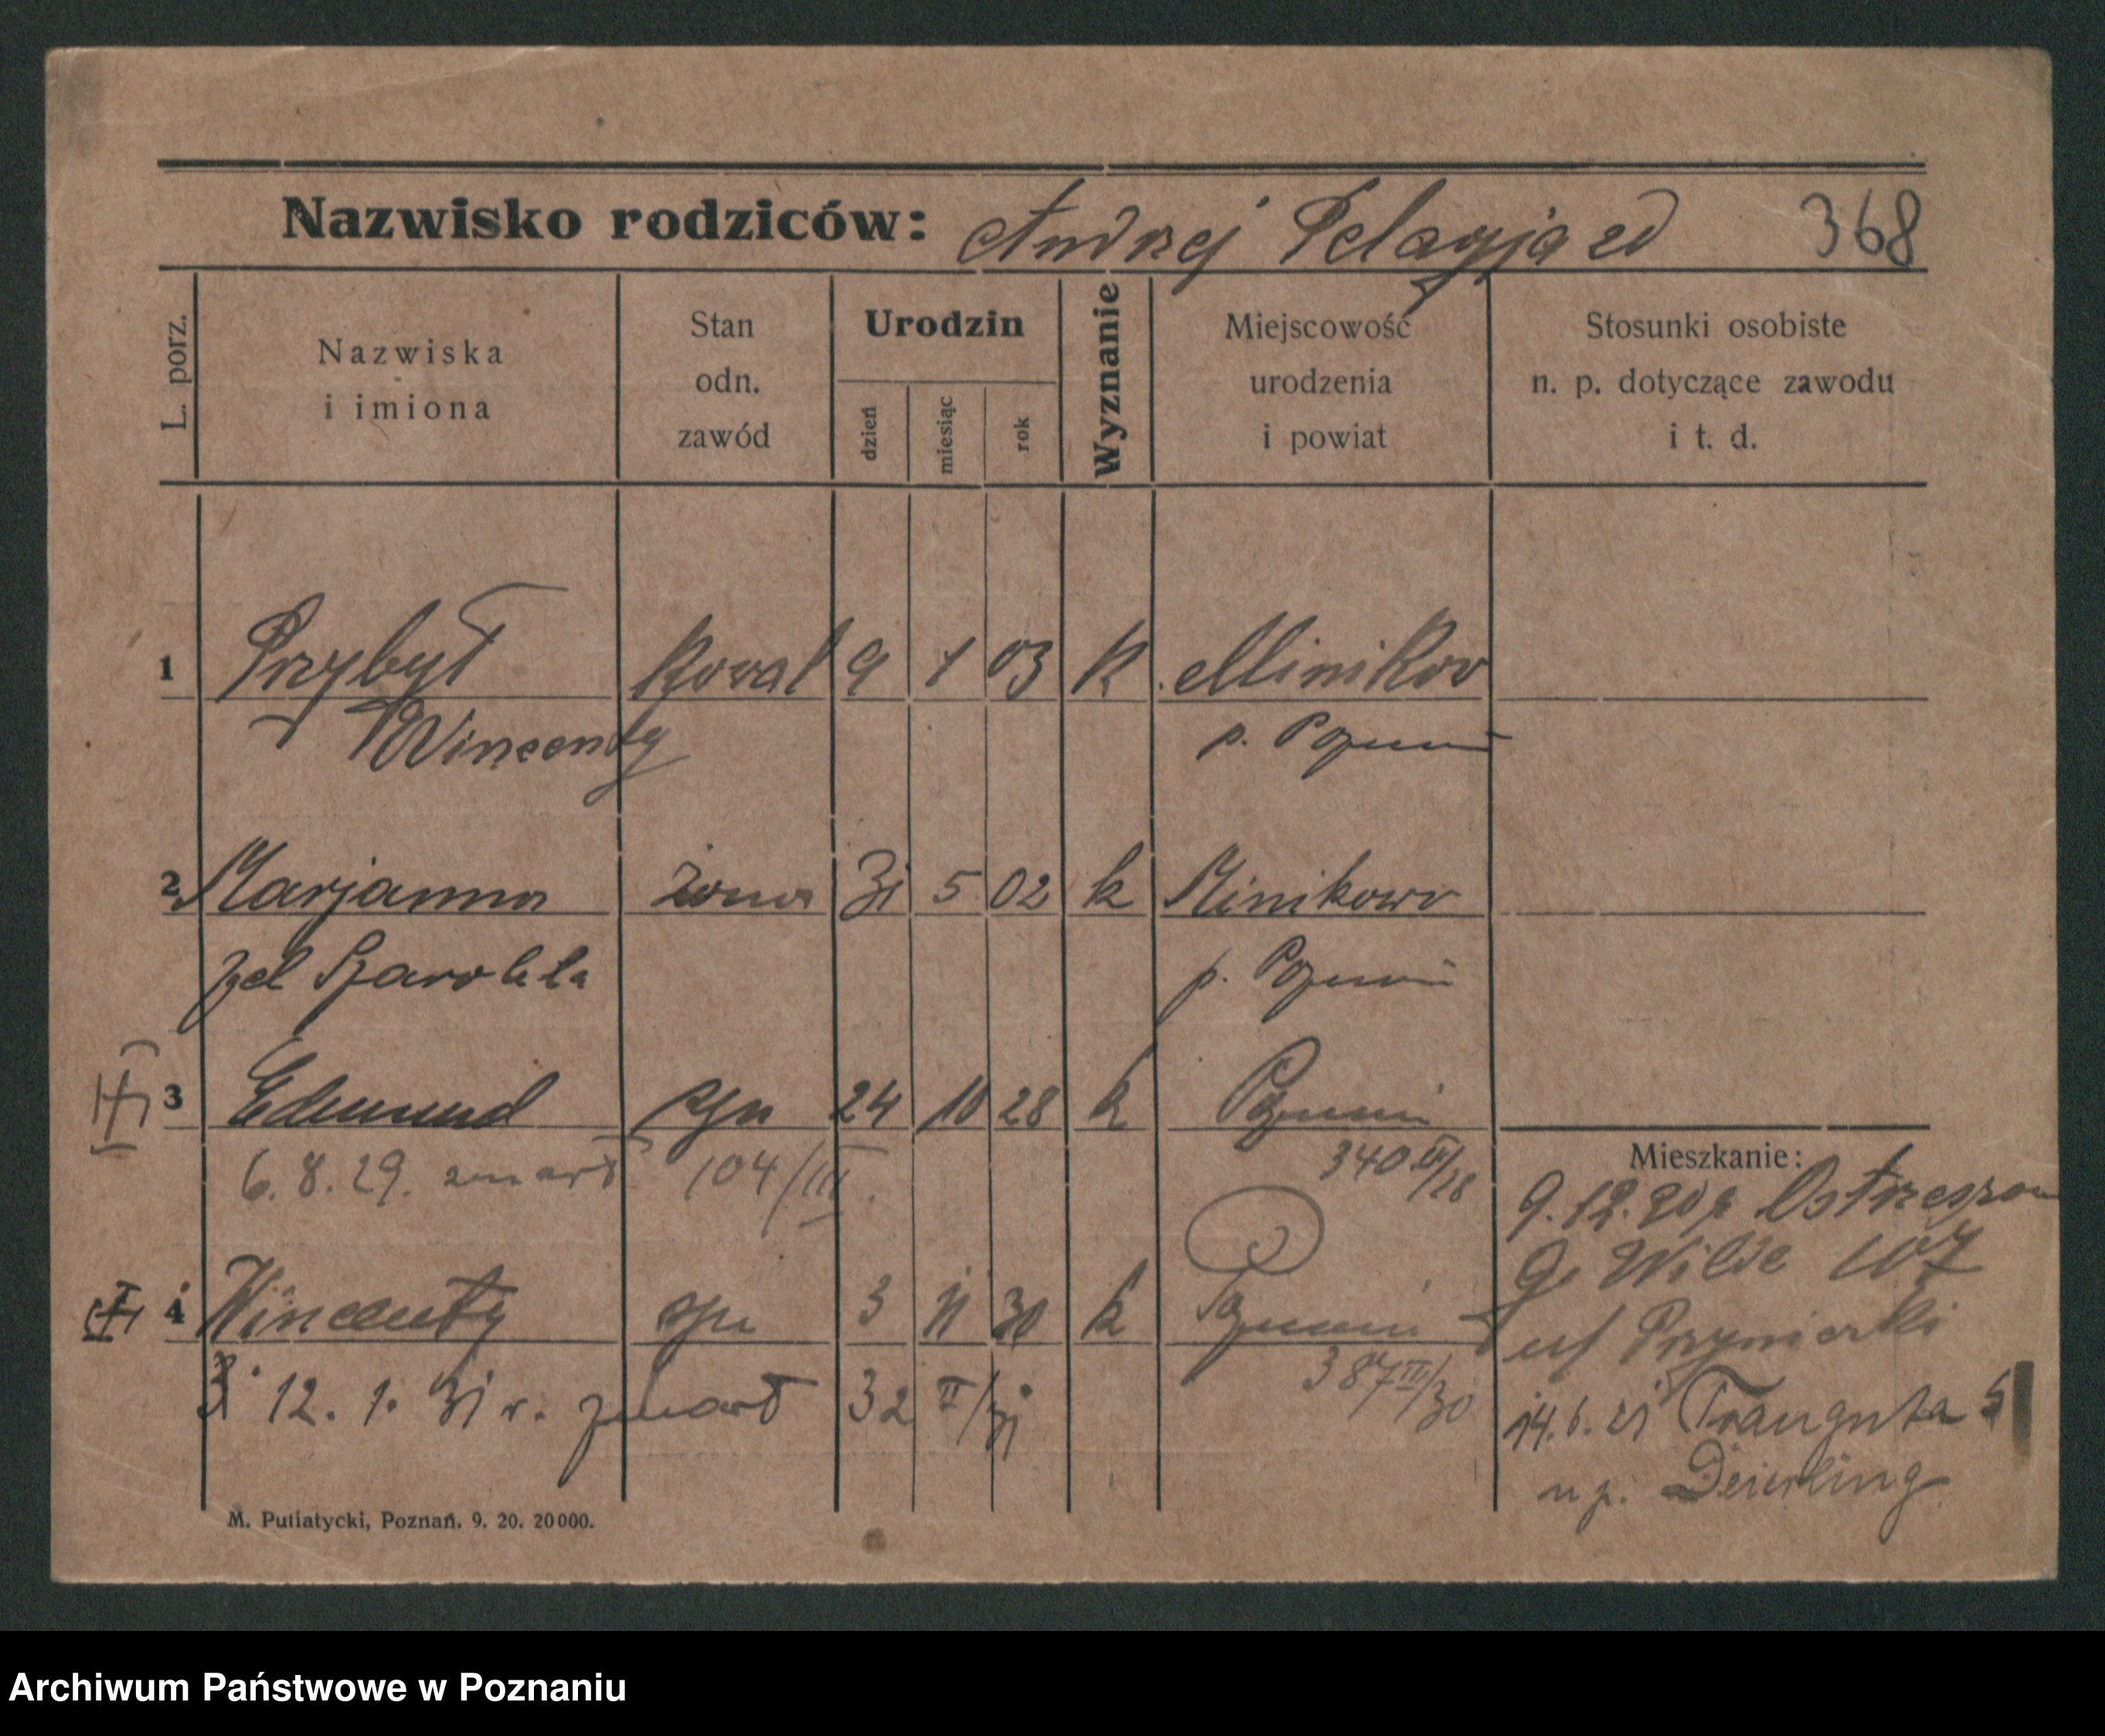 Nazwisko rodziców: Andrzej Pelagja 368
L. porz.
Nazwiska
i imiona
Stan
odn.
zawód
Urodzin
dzień
miesiąc
rok
Wyznanie
Miejscowość
urodzenia
i powiat
Stosunki osobiste
n. p. dotyczące zawodu
i t. d.
1 Przybył kowal 9 1 03 k Minikow
Wincenty p. Poznań
2 Marjanna żona 31 5 02 k Minikowo
p. Poznań
3 Edmund syn 24 10 28 k Poznań
6. 8. 29. zmarł 104/III. 340 III/28
Mieszkanie:
9. 12. 20 Ostrzeszow
G. Wilde 107
4 Wincenty syn 3 11 30 k Poznań
387 III/30
12. 1. 31 r. zmarł 32 II/31
14. 6. Traugutta 5
Deierling
M. Putiatycki, Poznań. 9. 20. 20000.
Archiwum Państwowe w Poznaniu